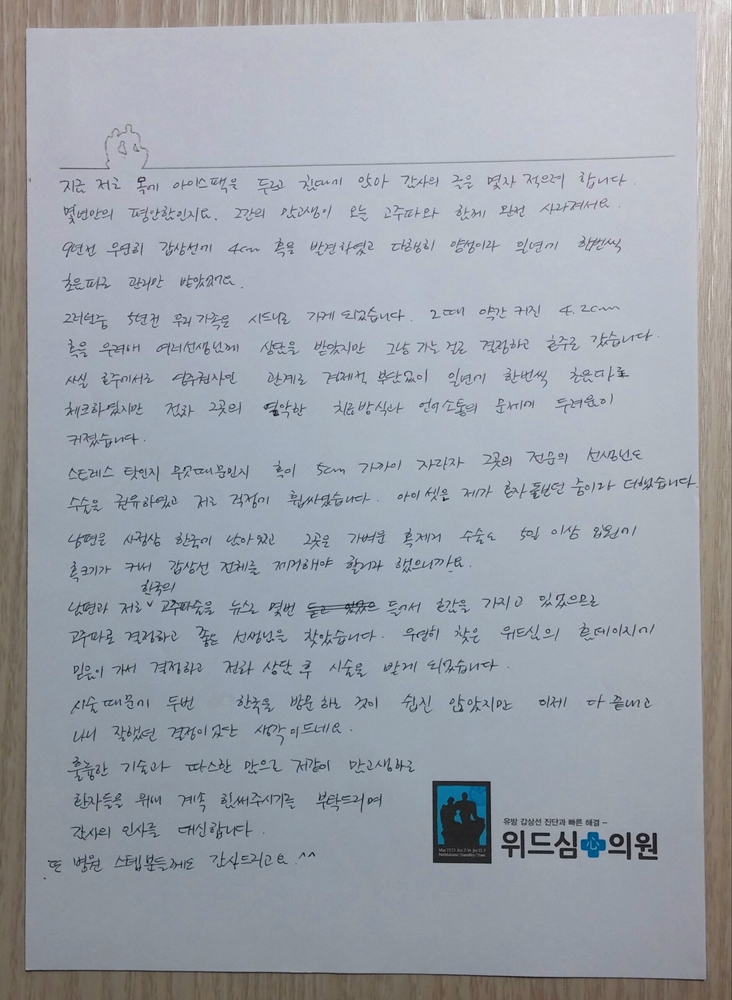 지금 저는 목에 아이스팩을 두르고 침대에 앉아 감사의 글을 몇자 적으려 합니다.
몇년만의 평안함인지요. 그간의 맘고생이 오늘 고주파와 함께 완전 사라져서요.
9년전 우연히 갑상선에 4cm 혹을 발견하였고 다행히 양성이라 일년에 한번씩
초음파로 관리만 받았었어요.
그러던중 5년전 우리가족은 시드니로 가게 되었습니다. 그때 약간 커진 4.2cm
혹을 우려해 여러선생님께 상담을 받았지만 그냥 가는 걸로 결정하고 호주로 갔습니다.
사실 호주에서도 영주권자인 관계로 경제적 부담없이 일년에 한번씩 초음파로
체크하였지만 점차 그곳의 열악한 치료방식과 언어소통의 문제에 두려움이
커졌습니다.
스트레스 탓인지 무엇때문인지 혹이 5cm 가까이 자라자 그곳의 전문의 선생님도
수술을 권유하였고 저는 걱정에 휩싸였습니다. 아이 셋을 제가 혼자 돌보던 중이라 더했습니다.
남편은 사정상 한국에 남아있고 그곳은 가벼운 혹제거 수술도 5일 이상 입원에
혹크기가 커서 갑상선 전체를 제거해야 할거라 했으니까요.
남편과 저는 한국의 고주파술을 뉴스로 몇번 들어서 호감을 가지고 있었으므로
고주파로 결정하고 좋은 선생님을 찾았습니다. 우연히 찾은 위드심의 홈페이지에
믿음이 가서 결정하고 전화 상담 후 시술을 받게 되었습니다.
시술때문에 두번 한국을 방문하는 것이 쉽진 않았지만 이제 다 끝내고
나니 잘했던 결정이었단 생각이드네요.
훌륭한 기술과 따스한 맘으로 저같이 맘고생하는
환자들을 위해 계속 힘써주시기를 부탁드리며
감사의 인사를 대신합니다.
또 병원 스텝분들께도 감사드리고요. ^^
유방 갑상선 진단과 빠른 해결 –
위드심 心 의원